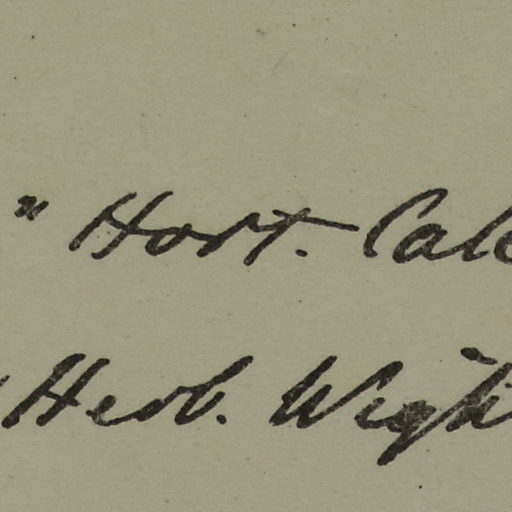 " Hort. Calc
Herb. Wight